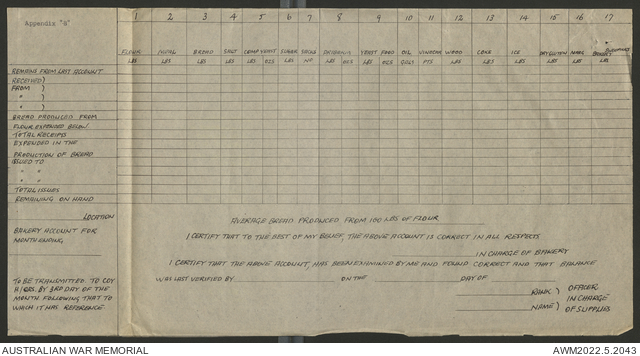 Appendix "A"
1 2 3 4 5 6 7 8 9 10 11 12 13 14 15 16 17
FLOUR MEAL BREAD SALT COMP YEAST SUGAR SACKS YEAST FOOD OIL VINEGAR WOOD COKE ICE DRY GLUTEN
LBS LBS LBS LBS LBS OZS LBS NO LBS OZS LBS OZS GALS PTS LBS LBS LBS LBS LBS LBS
REMAINS FROM LAST ACCOUNT
RECEIVED )
FROM )
" )
" )
BREAD PRODUCED FROM
FLOUR EXPENDED BELOW
TOTAL RECEIPTS
EXPENDED IN THE
PRODUCTION OF BREAD
ISSUED TO
" "
" "
TOTAL ISSUES
REMAINING ON HAND
LOCATION
BAKERY ACCOUNT FOR
MONTH ENDING
TO BE TRANSMITTED TO COY
H/QRS. BY 3RD DAY OF THE
MONTH FOLLOWING THAT TO
WHICH IT HAS REFERENCE.
AVERAGE BREAD PRODUCED FROM 100 LBS OF FLOUR
I CERTIFY THAT TO THE BEST OF MY BELIEF, THE ABOVE ACCOUNT IS CORRECT IN ALL RESPECTS
IN CHARGE OF BAKERY
I CERTIFY THAT THE ABOVE ACCOUNT, HAS BEEN EXAMINED BY ME AND FOUND CORRECT AND THAT BALANCE
WAS LAST VERIFIED BY ON THE DAY OF
RANK ) OFFICER
IN CHARGE
NAME ) OF SUPPLIES
AUSTRALIAN WAR MEMORIAL
AWM2022.5.2043